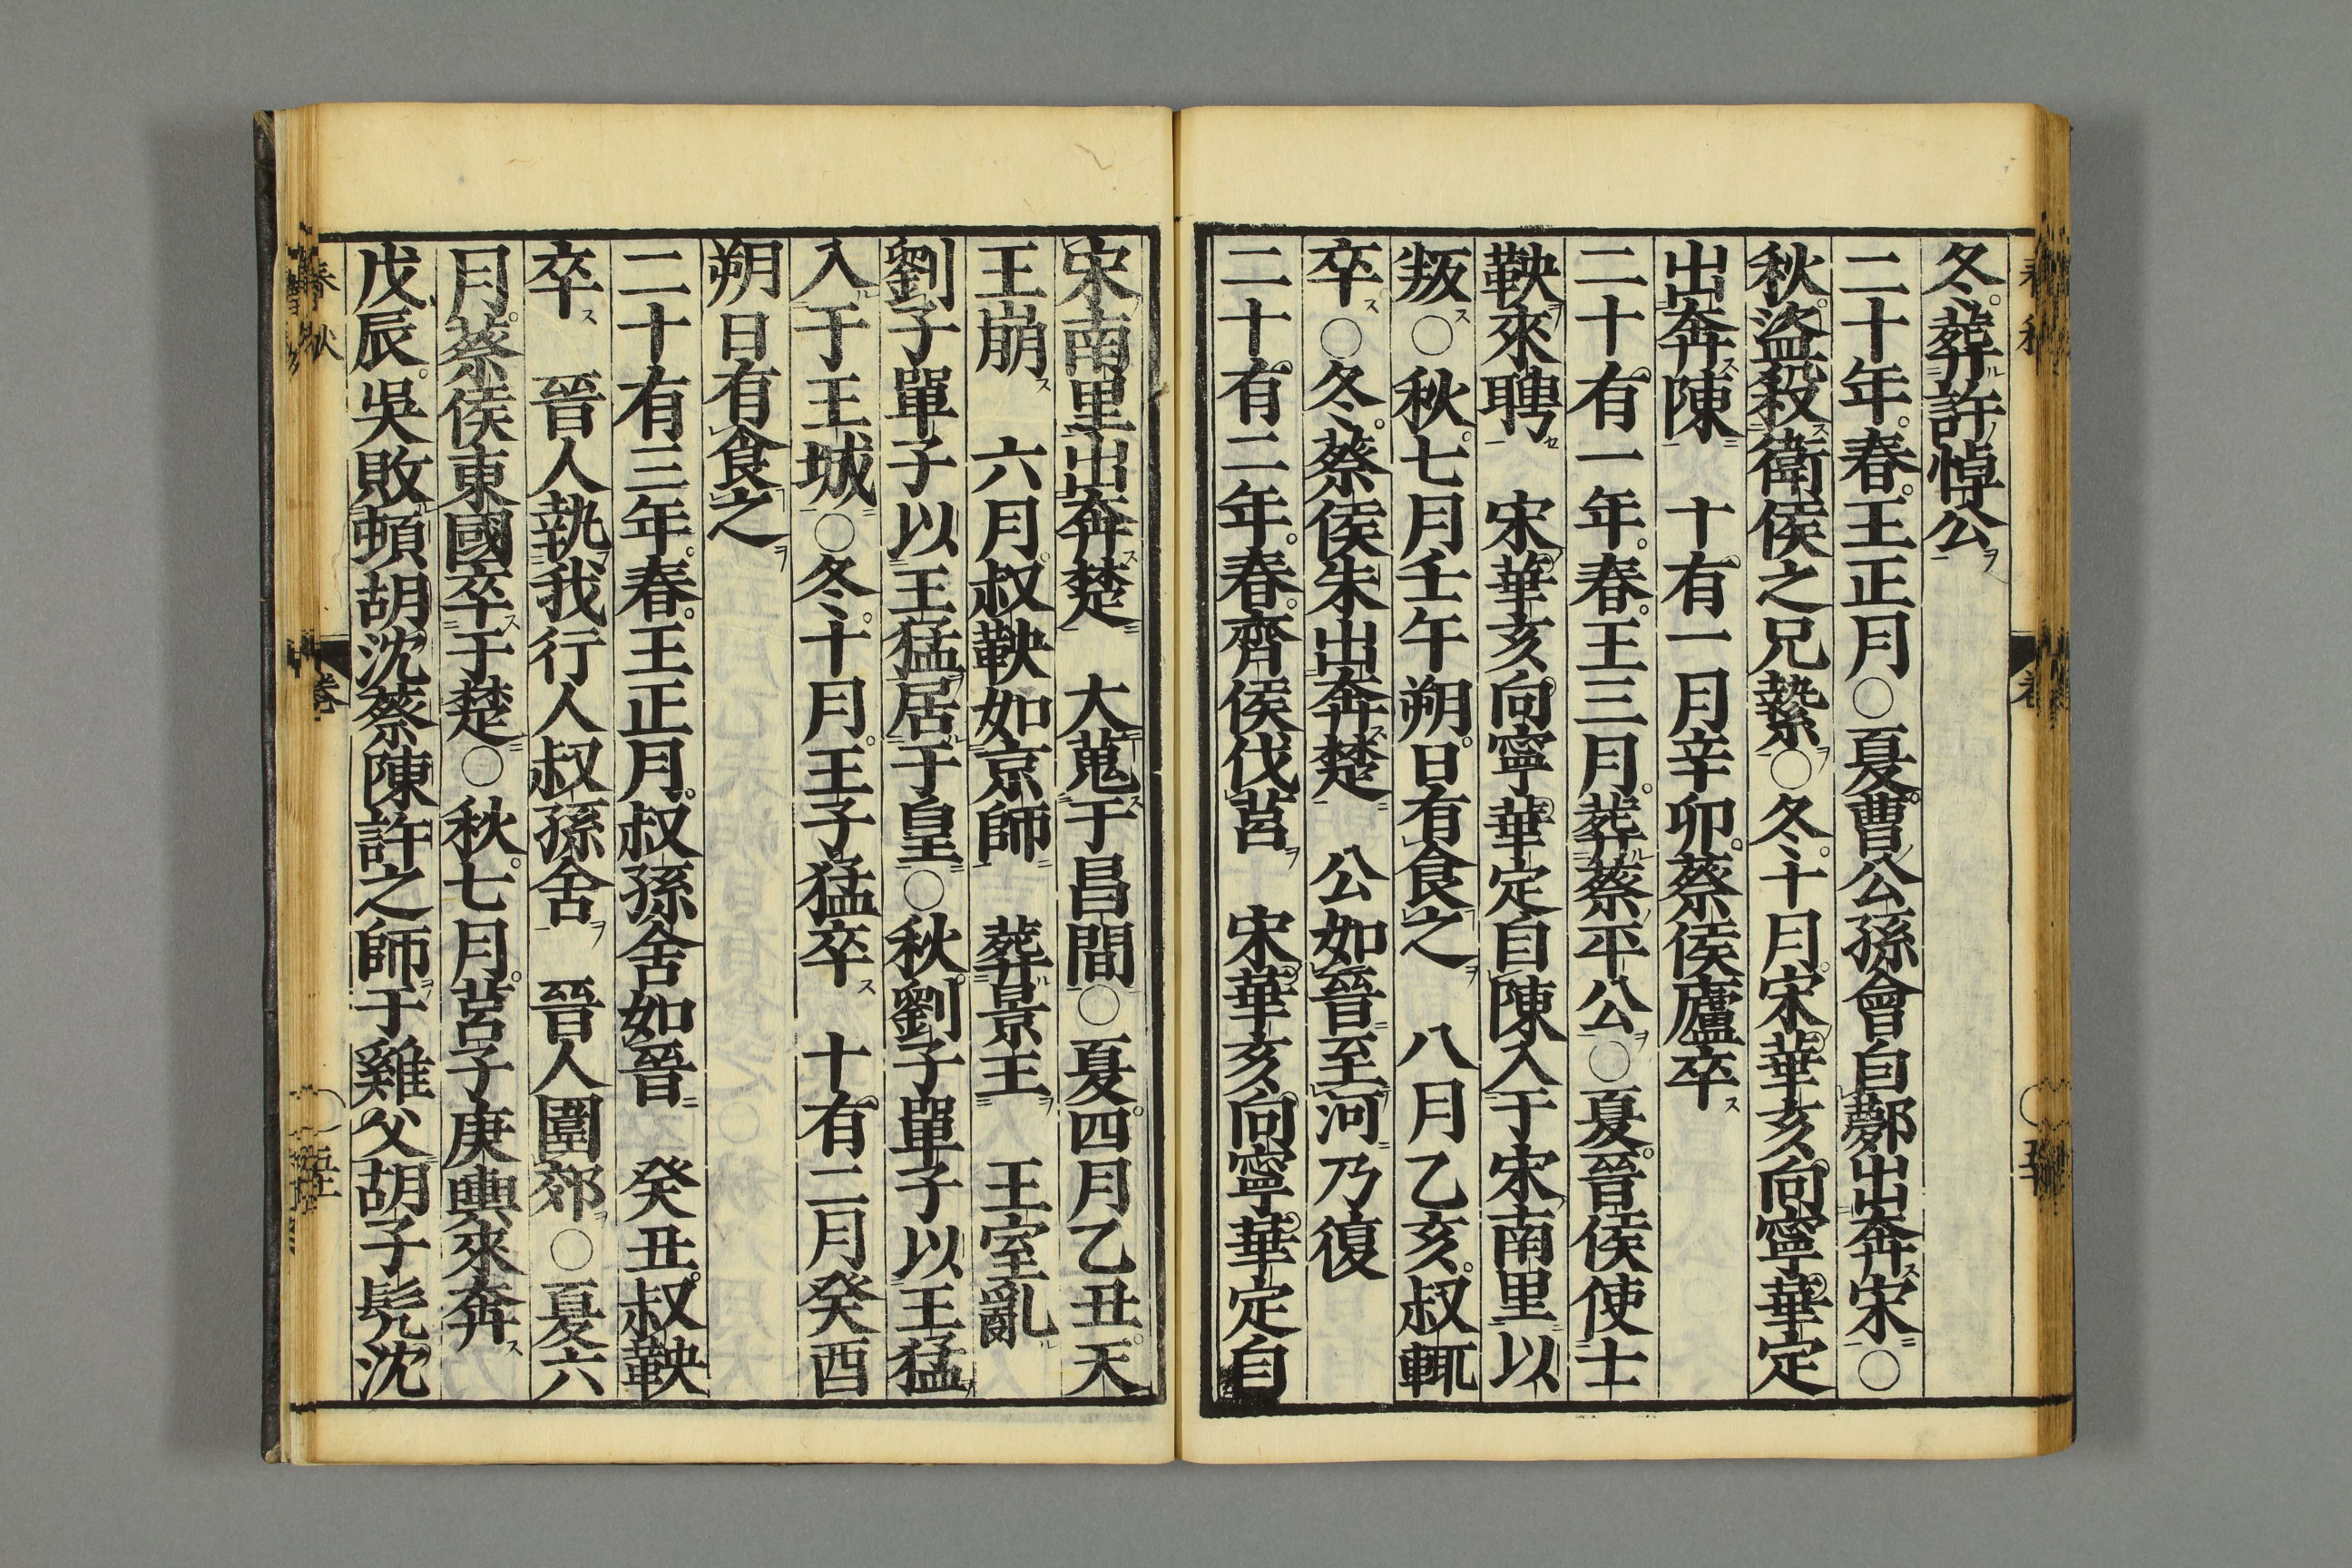 冬葬許悼公
二十年春王正月○夏曹公孫會自鄸出奔宋○
秋盜殺衛侯之兄縶○冬十月宋華亥向寧華定
出奔陳　十有一月辛卯蔡侯廬卒
二十有一年春王三月葬蔡平公○夏晉侯使士
鞅來聘　宋華亥向寧華定自陳入于宋南里以
叛○秋七月壬午朔日有食之　八月乙亥叔輒
卒○冬蔡侯朱出奔楚　公如晉至河乃復
二十有二年春齊侯伐莒　宋華亥向寧華定自
宋南里出奔楚　大蒐于昌間○夏四月乙丑天
王崩　六月叔鞅如京師　葬景王　王室亂
劉子單子以王猛居于皇○秋劉子單子以王猛
入于王城○冬十月王子猛卒　十有二月癸酉
朔日有食之
二十有三年春王正月叔孫舍如晉　癸丑叔鞅
卒　晉人執我行人叔孫舍　晉人圍郊○夏六
月蔡侯東國卒于楚○秋七月莒子庚輿來奔
戊辰吳敗頓胡沈蔡陳許之師于雞父胡子髡沈
春秋
卷